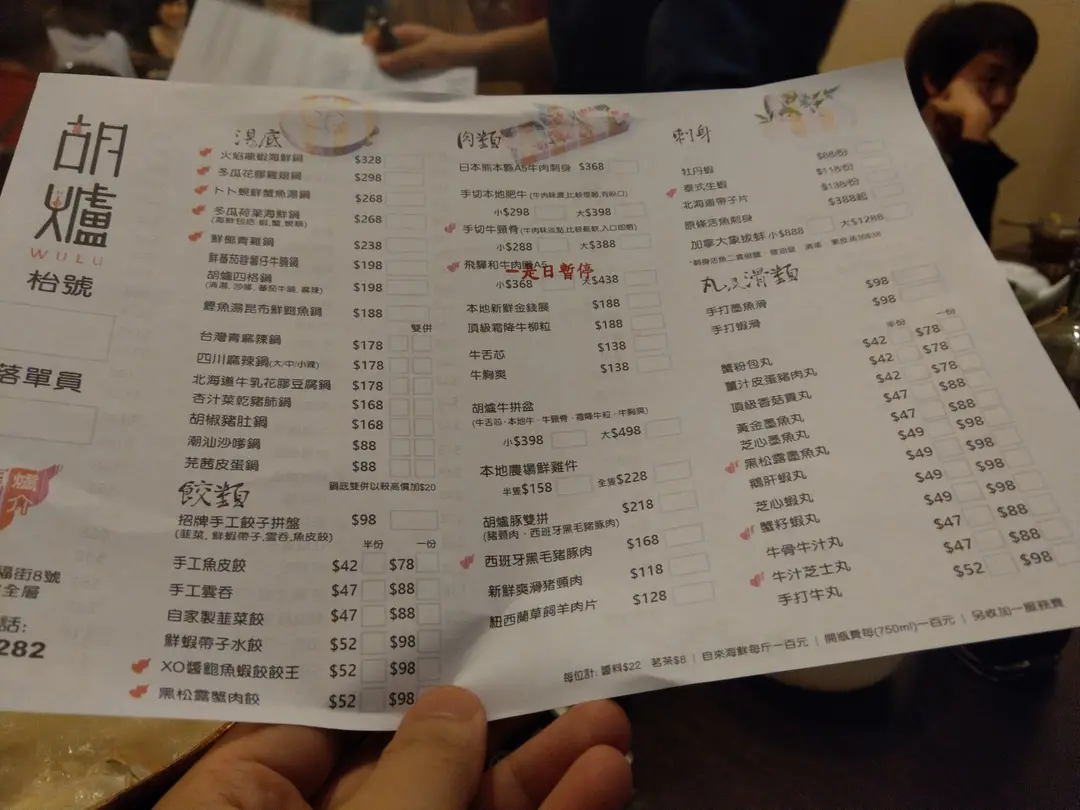 胡
爐
WULU
枱號
落單員
福街8號
全層
話:
282
湯底
火焰龍蝦海鮮鍋 $328
冬瓜花膠雞翅鍋 $298
卜卜蜆鮮蟹魚湯鍋 $268
冬瓜荷葉海鮮鍋 $268
鮮椰青雞鍋 $238
鮮番茄蓉薯仔牛腩鍋 $198
胡爐四格鍋 $198
(清湯, 沙嗲, 番茄牛腩, 麻辣)
鰹魚湯昆布鮮鮑魚鍋 $188
雙併
台灣青麻辣鍋 $178
四川麻辣鍋(大/中/小辣) $178
北海道牛乳花膠豆腐鍋 $178
杏汁菜乾豬肺鍋 $168
胡椒豬肚鍋 $168
潮汕沙嗲鍋 $88
芫茜皮蛋鍋 $88
鍋底雙併以較高價加$20
餃類
招牌手工餃子拼盤 $98
(韮菜, 鮮蝦帶子,雲吞,魚皮餃)
半份 一份
手工魚皮餃 $42 $78
手工雲吞 $47 $88
自家製韮菜餃 $47 $88
鮮蝦帶子水餃 $52 $98
XO醬鮑魚蝦餃餃王 $52 $98
黑松露蟹肉餃 $52 $98
肉類
日本熊本縣A5牛肉刺身 $368
手切本地肥牛
小$298 大$398
手切牛頸骨
小$288 大$388
飛驒和牛肉
是日暫停
小$368 大$438
本地新鮮金錢展 $188
頂級霜降牛柳粒 $188
牛舌芯 $138
牛胸爽 $138
胡爐牛拼盆
(牛舌芯·本地牛·牛頸骨·霜降牛粒·牛胸爽)
小$398 大$498
本地農場鮮雞件
半隻$158 全隻$228
胡爐豚雙拼 $218
(豬頸肉·西班牙黑毛豬豚肉)
西班牙黑毛豬豚肉 $168
新鮮爽滑猪頸肉 $118
紐西蘭草飼羊肉片 $128
刺身
牡丹蝦 $88/份
泰式生蝦 $118/份
北海道帶子片 $138/份
原條活魚刺身 $388起
加拿大象拔蚌 小$888 大$1288
丸及滑類
手打墨魚滑 $98
手打蝦滑 $98
半份 一份
蟹粉包丸 $42 $78
薑汁皮蛋豬肉丸 $42 $78
頂級香菇貢丸 $42 $78
黃金墨魚丸 $47 $88
芝心墨魚丸 $47 $88
黑松露墨魚丸 $49 $98
鵝肝蝦丸 $49 $98
芝心蝦丸 $49 $98
蟹籽蝦丸 $49 $98
牛骨牛汁丸 $47 $88
牛汁芝士丸 $47 $88
手打牛丸 $52 $98
每位計: 醬料$22 茗茶$8 | 自來海鮮每斤一百元 | 開瓶費每(750ml)一百元 | 另收加一服務費